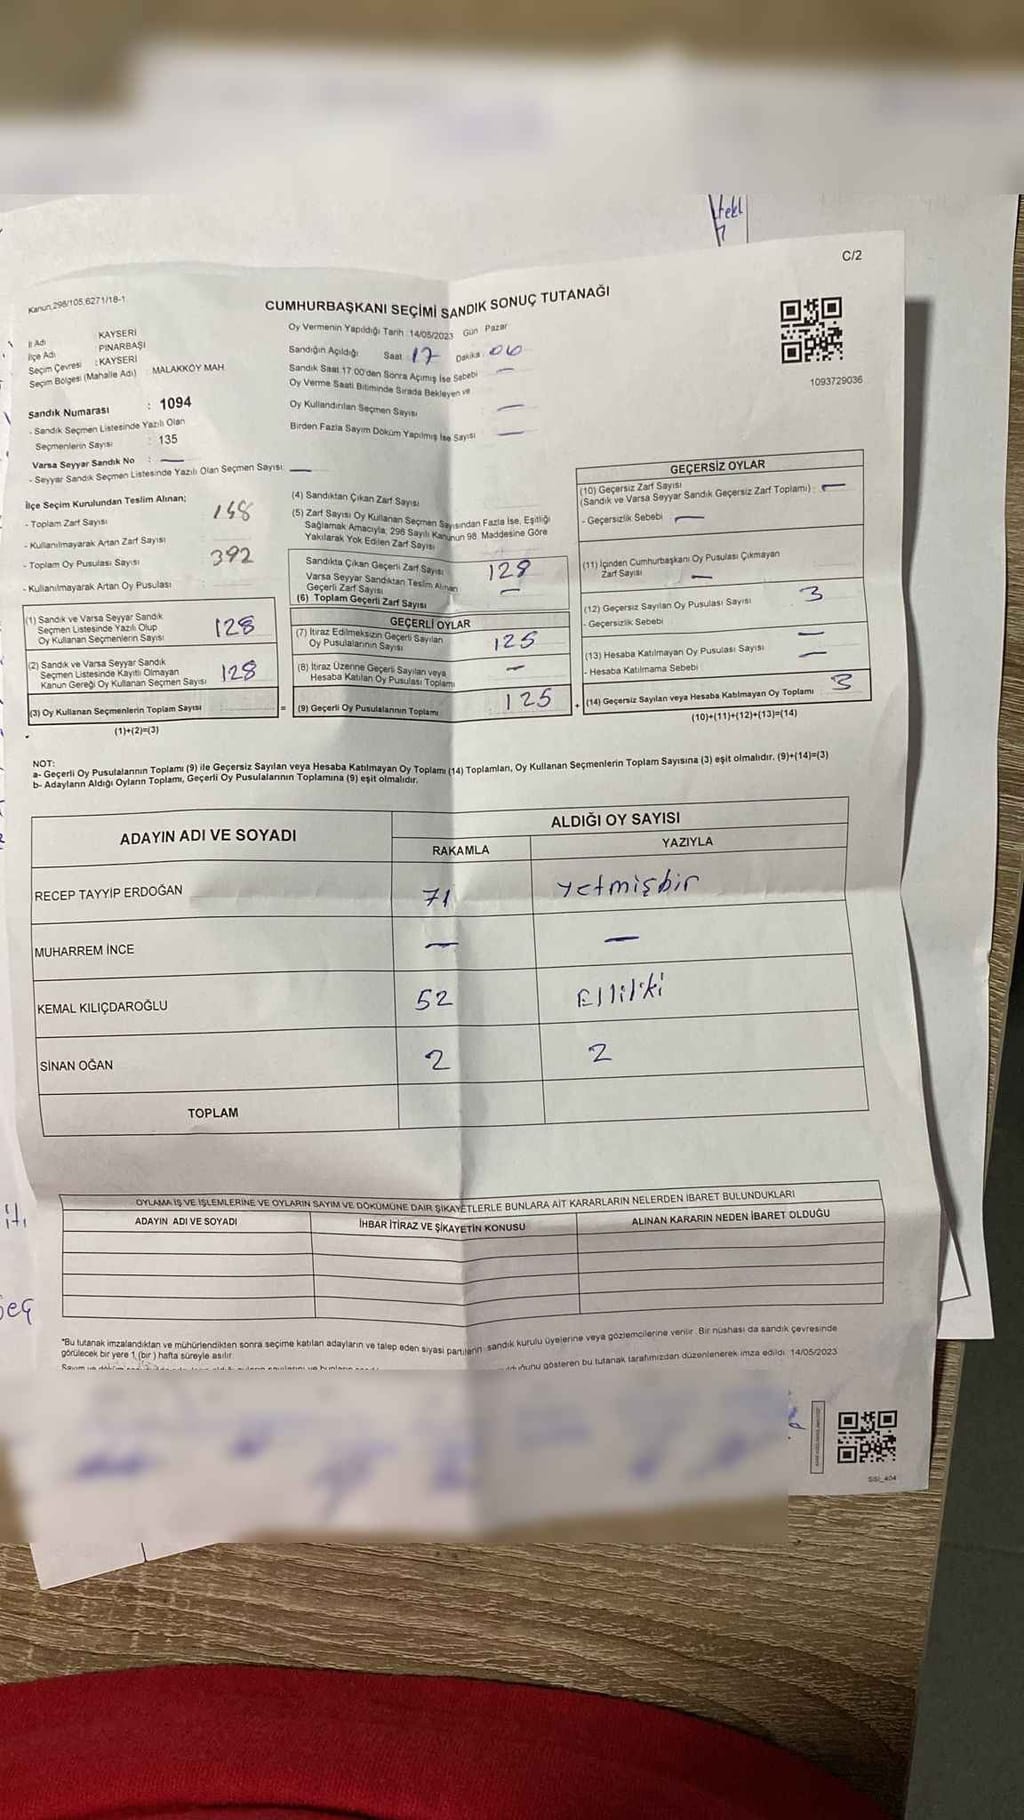 tekl
C/2
Kanun 298/105,6271/18-1
CUMHURBAŞKANI SEÇİMİ SANDIK SONUÇ TUTANAĞI
İl Adı KAYSERİ
İlçe Adı PINARBAŞI
Seçim Çevresi : KAYSERİ
Seçim Bölgesi (Mahalle Adı) MALAKKÖY MAH.
Oy Vermenin Yapıldığı Tarih : 14/05/2023 Gün Pazar
Sandığın Açıldığı Saat 17 Dakika 06
Sandık Saat 17:00'den Sonra Açımış İse Sebebi —
Oy Verme Saati Bitiminde Sırada Bekleyen ve
Oy Kullandırılan Seçmen Sayısı —
Birden Fazla Sayım Döküm Yapılmış İse Sayısı —
1093729036
Sandık Numarası : 1094
- Sandık Seçmen Listesinde Yazılı Olan
Seçmenlerin Sayısı : 135
Varsa Seyyar Sandık No : —
- Seyyar Sandık Seçmen Listesinde Yazılı Olan Seçmen Sayısı: —
İlçe Seçim Kurulundan Teslim Alınan;
- Toplam Zarf Sayısı
- Kullanılmayarak Artan Zarf Sayısı
- Toplam Oy Pusulası Sayısı 392
- Kullanılmayarak Artan Oy Pusulası
(1) Sandık ve Varsa Seyyar Sandık
Seçmen Listesinde Yazılı Olup
Oy Kullanan Seçmenlerin Sayısı 128
(2) Sandık ve Varsa Seyyar Sandık
Seçmen Listesinde Kayıtlı Olmayan
Kanun Gereği Oy Kullanan Seçmen Sayısı 128
(3) Oy Kullanan Seçmenlerin Toplam Sayısı =
(1)+(2)=(3)
(4) Sandıktan Çıkan Zarf Sayısı
(5) Zarf Sayısı Oy Kullanan Seçmen Sayısından Fazla İse, Eşitliği
Sağlamak Amacıyla; 298 Sayılı Kanunun 98. Maddesine Göre
Yakılarak Yok Edilen Zarf Sayısı
Sandıkta Çıkan Geçerli Zarf Sayısı 128
Varsa Seyyar Sandıktan Teslim Alınan
Geçerli Zarf Sayısı —
(6) Toplam Geçerli Zarf Sayısı
GEÇERLİ OYLAR
(7) İtiraz Edilmeksizin Geçerli Sayılan
Oy Pusulalarının Sayısı 125
(8) İtiraz Üzerine Geçerli Sayılan veya
Hesaba Katılan Oy Pusulası Toplamı —
(9) Geçerli Oy Pusulalarının Toplamı 125 +
GEÇERSİZ OYLAR
(10) Geçersiz Zarf Sayısı
(Sandık ve Varsa Seyyar Sandık Geçersiz Zarf Toplamı) : —
- Geçersizlik Sebebi —
(11) İçinden Cumhurbaşkanı Oy Pusulası Çıkmayan
Zarf Sayısı —
(12) Geçersiz Sayılan Oy Pusulası Sayısı 3
- Geçersizlik Sebebi
(13) Hesaba Katılmayan Oy Pusulası Sayısı —
- Hesaba Katılmama Sebebi —
(14) Geçersiz Sayılan veya Hesaba Katılmayan Oy Toplamı 3
(10)+(11)+(12)+(13)=(14)
NOT:
a- Geçerli Oy Pusulalarının Toplamı (9) ile Geçersiz Sayılan veya Hesaba Katılmayan Oy Toplamı (14) Toplamları, Oy Kullanan Seçmenlerin Toplam Sayısına (3) eşit olmalıdır. (9)+(14)=(3)
b- Adayların Aldığı Oyların Toplamı, Geçerli Oy Pusulalarının Toplamına (9) eşit olmalıdır.
ADAYIN ADI VE SOYADI ALDIĞI OY SAYISI
RAKAMLA YAZIYLA
RECEP TAYYİP ERDOĞAN 71 yetmişbir
MUHARREM İNCE — —
KEMAL KILIÇDAROĞLU 52 Elliiki
SİNAN OĞAN 2 2
TOPLAM
OYLAMA İŞ VE İŞLEMLERİNE VE OYLARIN SAYIM VE DÖKÜMÜNE DAİR ŞİKAYETLERLE BUNLARA AİT KARARLARIN NELERDEN İBARET BULUNDUKLARI
ADAYIN ADI VE SOYADI İHBAR İTİRAZ VE ŞİKAYETİN KONUSU ALINAN KARARIN NEDEN İBARET OLDUĞU
*Bu tutanak imzalandıktan ve mühürlendikten sonra seçime katılan adayların ve talep eden siyasi partilerin sandık kurulu üyelerine veya gözlemcilerine verilir. Bir nüshası da sandık çevresinde
görülecek bir yere 1 (bir) hafta süreyle asılır.
gösteren bu tutanak tarafımızdan düzenlenerek imza edildi. 14/05/2023
SSI_404